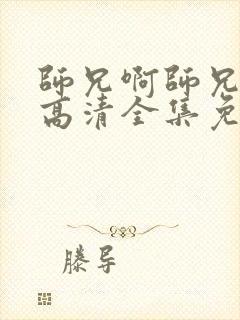 師兄啊師兄
高清全集免
滕导